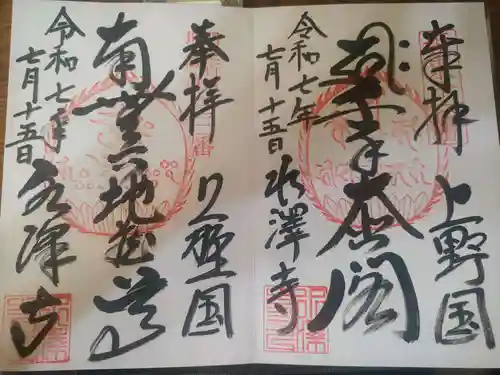 奉拝 上野国
千手大悲閣
令和七年
七月十五日 水澤寺
奉拝 上野国
南無六地蔵尊
令和七年
七月十五日 水澤寺